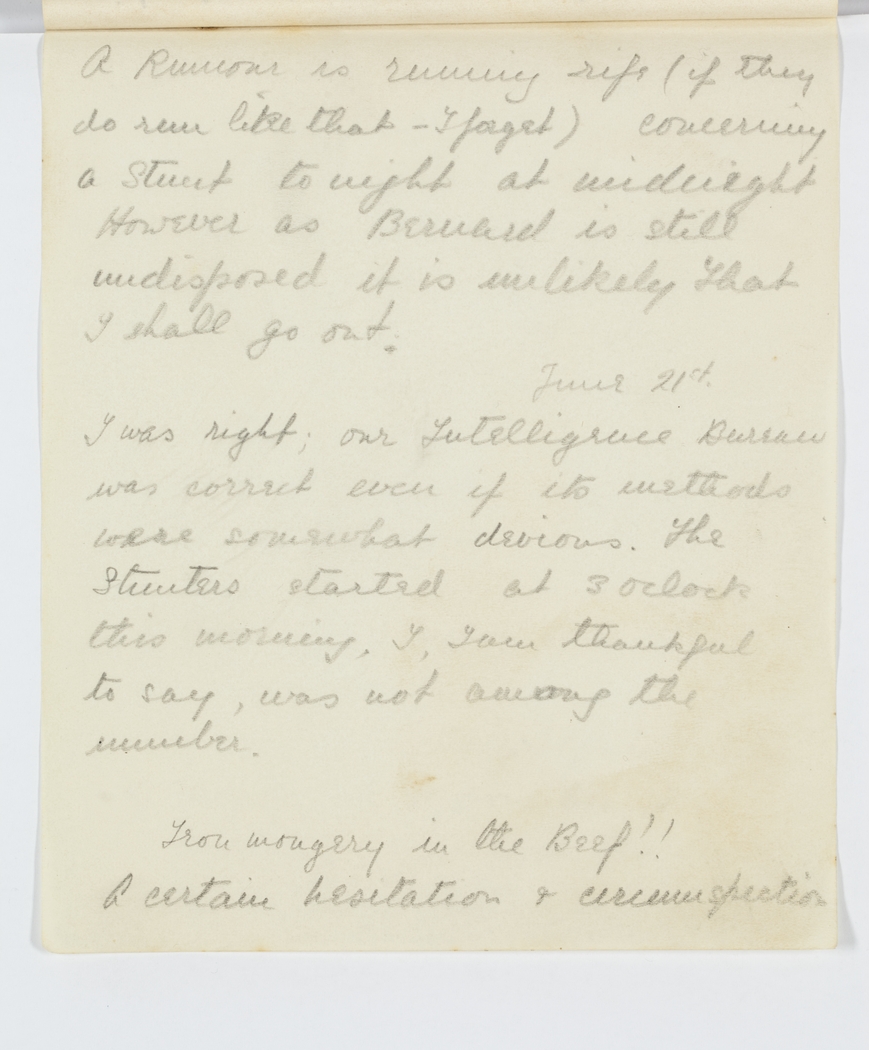 A Rumour is running rife (if they
do run like that - I forget) concerning
a Stunt tonight at midnight
However as Bernard is still
undisposed it is unlikely that
I shall go out.
June 21st.
I was right; our Intelligence Bureau
was correct even if its methods
were somewhat devious. The
Stunters started at 3 oclock
this morning. I, I am thankful
to say, was not among the
number.
Iron mongery in the Beef!!
A certain hesitation & circumspection